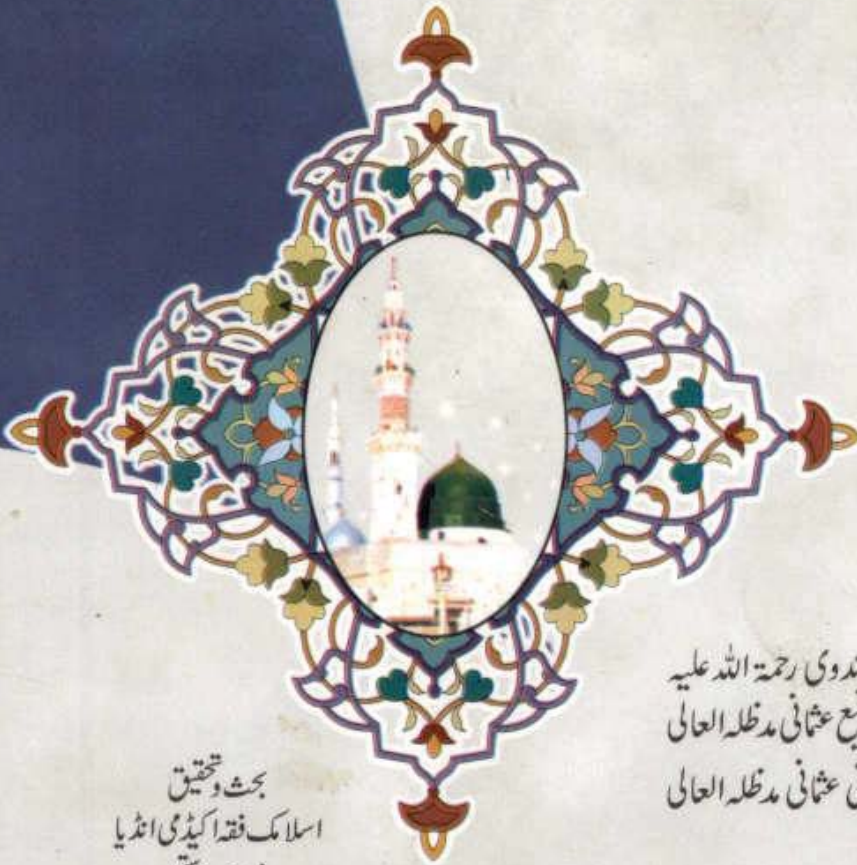 ندوی رحمۃ اللہ علیہ
یع عثمانی مدظلہ العالی
عثمانی مدظلہ العالی
بحث و تحقیق
اسلامک فقہ اکیڈمی انڈیا